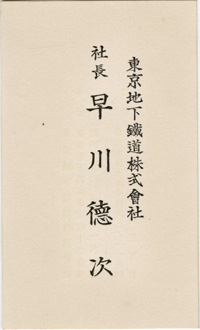 東京地下鐵道株式會社
社長 早川德次